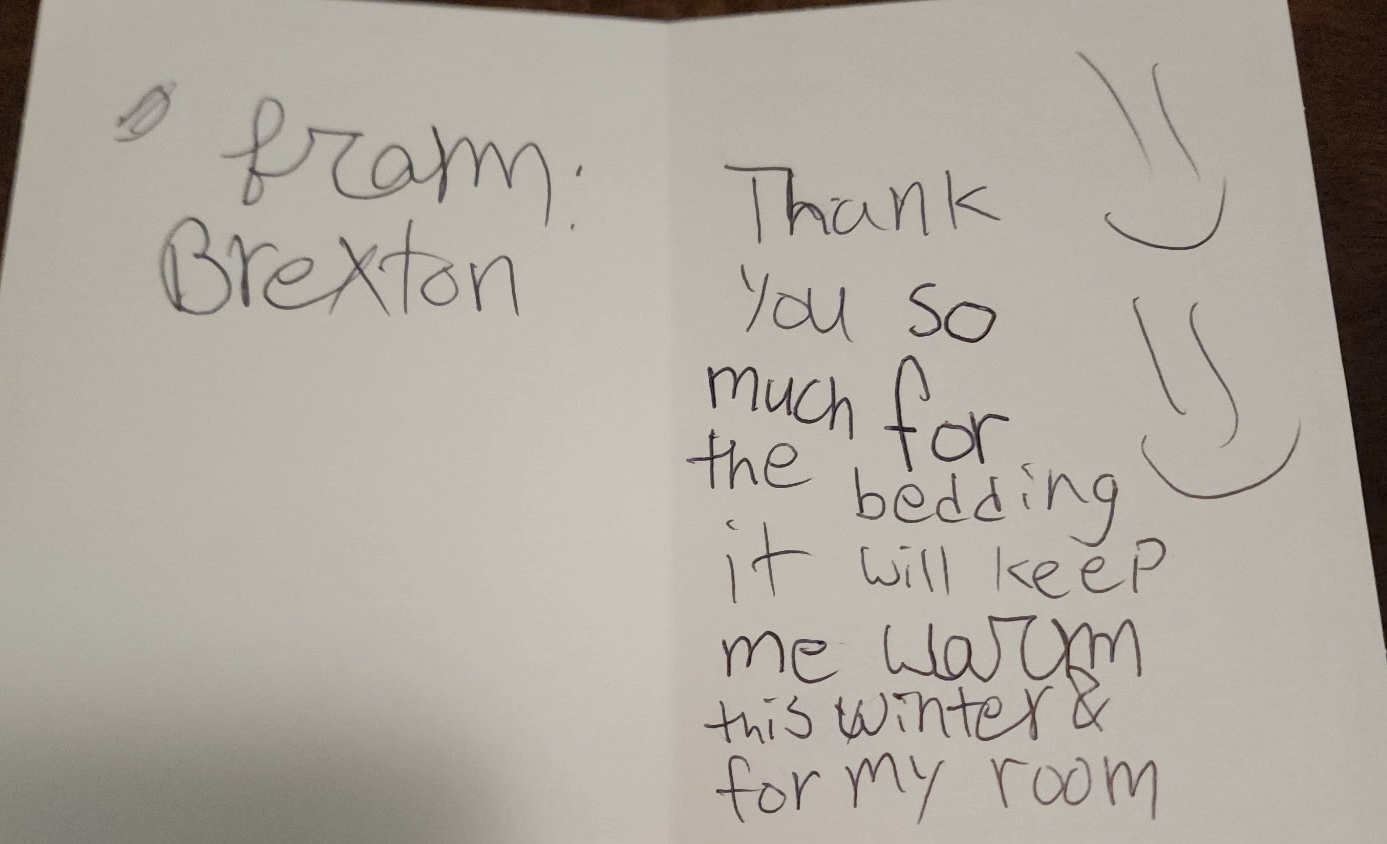 fram:
Brexton
Thank
you so
much for
the bedding
it will keep
me warm
this winter &
for my room